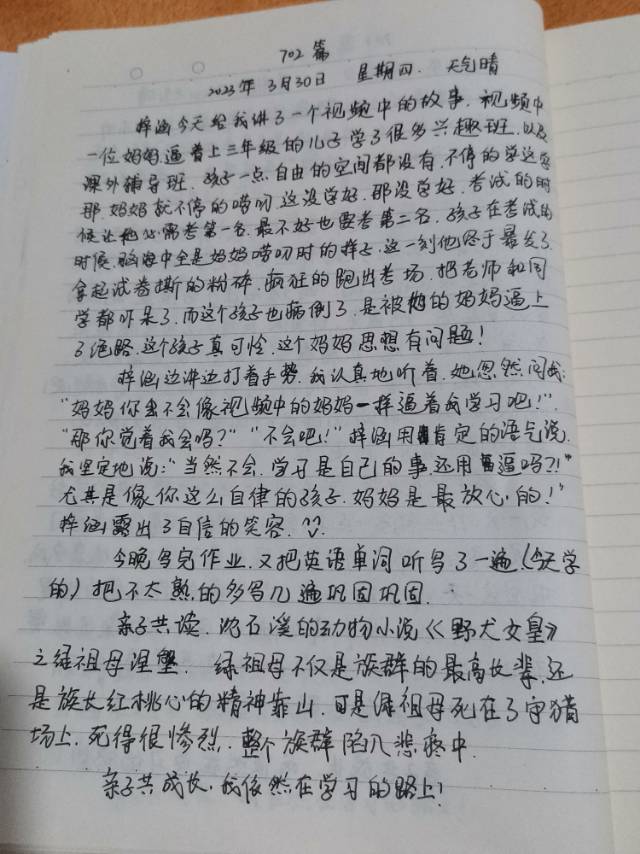 702篇
2023年3月30日 星期四. 天气晴
梓涵今天给我讲了一个视频中的故事. 视频中
一位妈妈.逼着上三年级的儿子学了很多兴趣班.以及
课外辅导班. 孩子一点.自由的空间都没有.不停的学这学
那.妈妈就不停的唠叨.这没学好.那没学好.考试的时
候让他必需考第一名.最不好也要考第二名. 孩子在考试的
时候.脑海中全是妈妈唠叨时的样子.这一刻他终于爆发了.
拿起试卷撕的粉碎.疯狂的跑出考场.把老师和同
学都吓呆了.而这个孩子也病倒了.是被他的妈妈逼上
了绝路.这个孩子真可怜.这个妈妈思想有问题!
梓涵边讲边打着手势.我认真地听着.她忽然问我:
"妈妈你会不会像视频中的妈妈一样逼着我学习吧!".
"那你觉着我会吗?" "不会吧!" 梓涵用肯定的语气说.
我坚定地说:"当然不会.学习是自己的事.还用逼吗?!"
尤其是像你这么自律的孩子.妈妈是最放心的!"
梓涵露出了自信的笑容.
今晚写完作业.又把英语单词听写了一遍.(今天学
的)把不太熟的多写几遍巩固巩固.
亲子共读.沈石溪的动物小说《野犬女皇》
之绿祖母涅槃. 绿祖母不仅是族群的最高长辈.还
是族长红桃心的精神靠山.可是绿祖母死在了守猎
场上.死得很惨烈.整个族群陷入悲疼中.
亲子共成长.我依然在学习的路上!